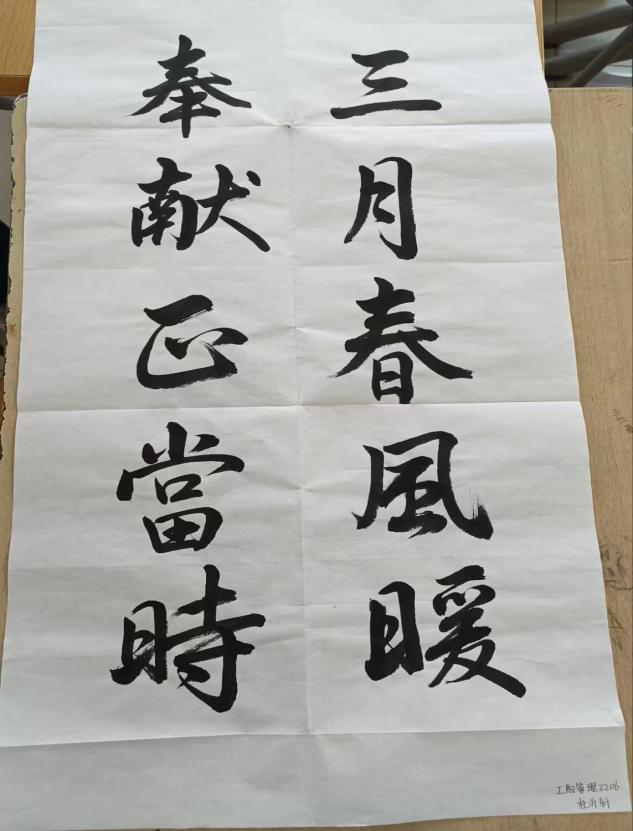 三月春風暖
奉献正當時
工商管理2206
杜沂轩